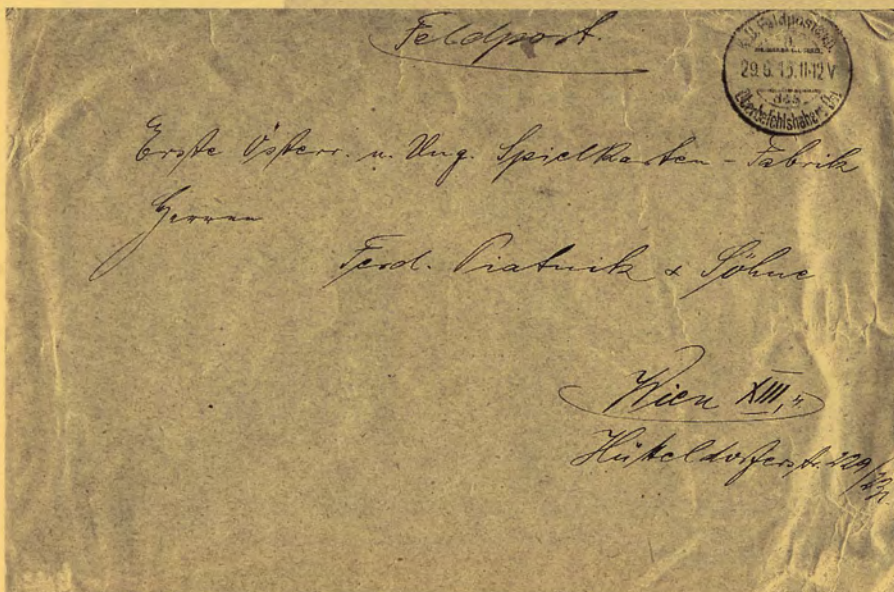 Feldpost.
29.6.15.11-12V
des
Oberbefehlshabers Ost
Erste Österr. u. Ung. Spielkarten-Fabrik
Herren
Ferd. Piatnik & Söhne
Wien XIII,
Hütteldorferstr. 229/